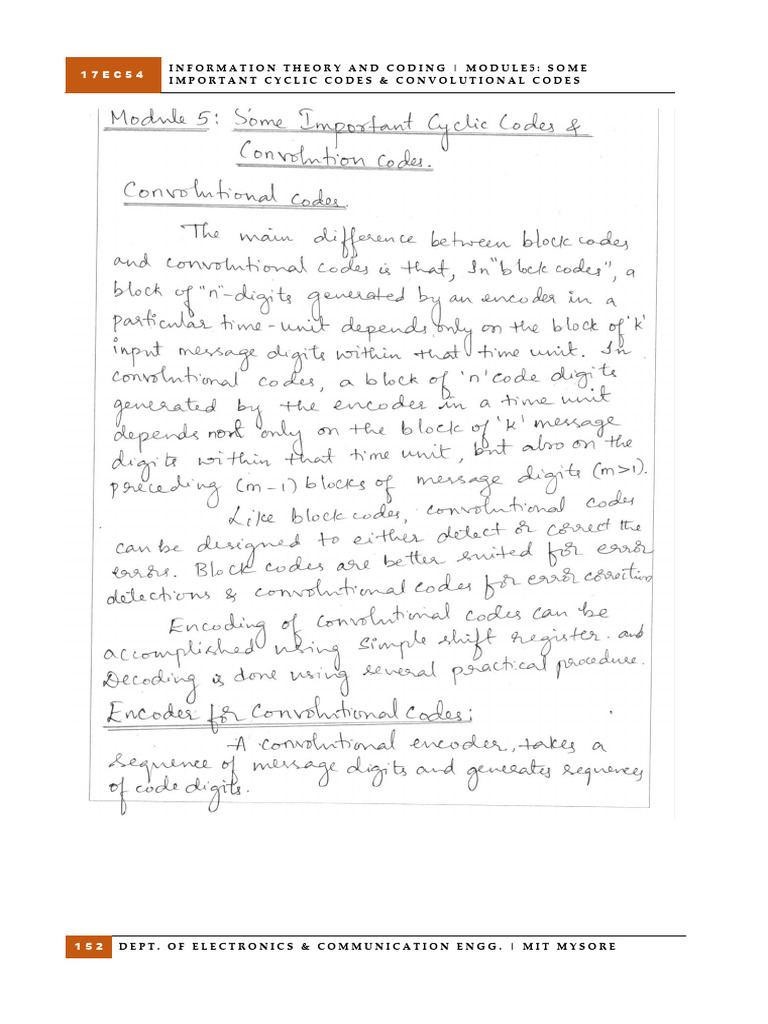 17EC54
INFORMATION THEORY AND CODING | MODULE5: SOME
IMPORTANT CYCLIC CODES & CONVOLUTIONAL CODES
Module 5: Some Important Cyclic Codes &
Convolution codes.
Convolutional codes.
The main difference between block codes
and convolutional codes is that, In "block codes", a
block of "n"-digits generated by an encoder in a
particular time-unit depends only on the block of 'k'
input message digits within that time unit. In
convolutional codes, a block of 'n' code digits
generated by the encoder in a time unit
depends not only on the block of 'k' message
digits within that time unit, but also on the
preceding (m-1) blocks of message digits (m>1).
Like block codes, convolutional codes
can be designed to either detect or correct the
errors. Block codes are better suited for error
detections & convolutional codes for error correction
Encoding of convolutional codes can be
accomplished using simple shift register. and
Decoding is done using several practical procedure.
Encoder for Convolutional Codes:
A convolutional encoder, takes a
sequence of message digits and generates sequences
of code digits.
152
DEPT. OF ELECTRONICS & COMMUNICATION ENGG. | MIT MYSORE